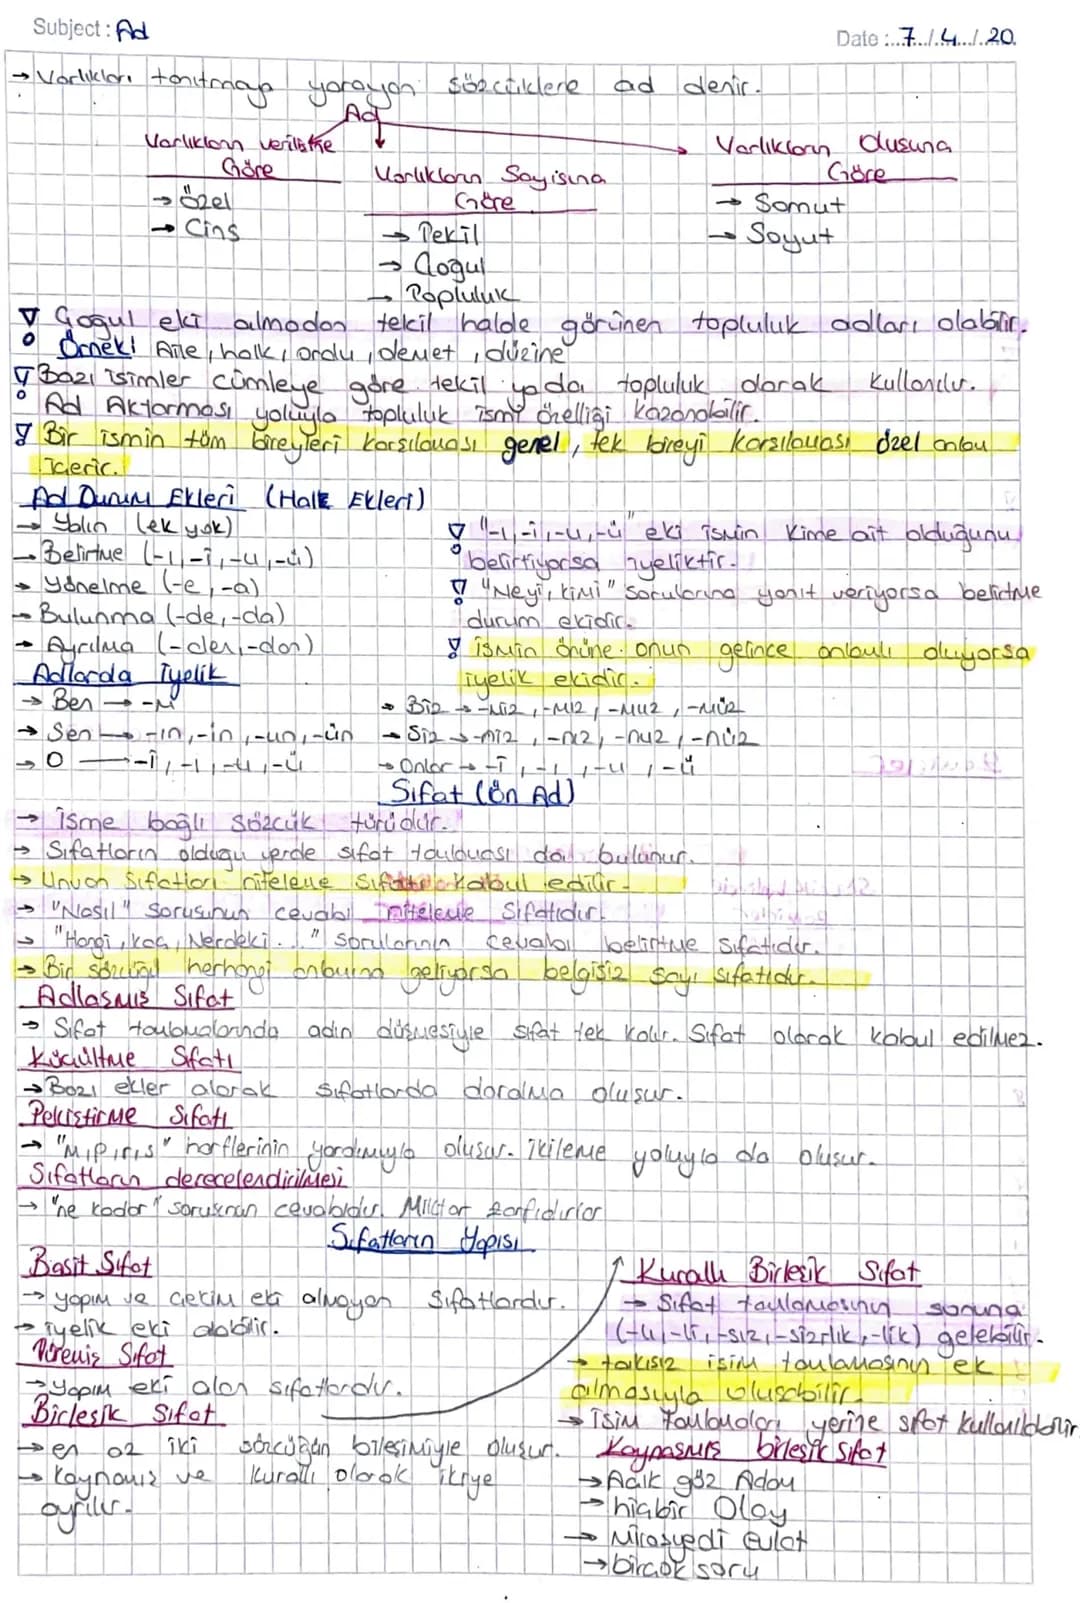 Subject: Ad
Date: 7/4/20
→ Varlıkları tanıtmaya yarayan sözcüklere ad denir.
Ad
Varlıkların verilişine Göre
→ Özel
→ Cins
Varlıkların Sayısına Göre
→ Tekil
→ Çoğul
→ Topluluk
Varlıkların Olusuna Göre
→ Somut
→ Soyut
Çogul eki almadan tekil halde görünen topluluk adları olabilir.
Örnek! Aile, halk, ordu, demet, düzine
Bazı isimler cümleye göre tekil yada topluluk olarak kullanılır.
Ad Aktarması yoluyla topluluk ismi özelliği kazanabilir.
Bir ismin tüm bireyleri karsılaması genel, tek bireyi karsılaması özel anlam
içerir.
Ad Durum Ekleri (Hal Ekleri)
→ Yalın (ek yok)
→ Belirtme (-ı, -i, -u, -ü)
→ Yönelme (-e, -a)
→ Bulunma (-de, -da)
→ Ayrılma (-den, -dan)
"-ı, -i, -u, -ü" eki ismin kime ait olduğunu
belirtiyorsa iyeliktir.
"Neyi, kimi" sorularına yanıt veriyorsa belirtme
durum ekidir.
ismin önüne onun gelince anlamlı oluyorsa
iyelik ekidir.
Adlarda İyelik
→ Ben → -m
→ Sen → -ın, -in, -un, -ün
→ O → -i, -ı, -u, -ü
→ Biz → -miz, -mız, -muz, -müz
→ Siz → -niz, -nız, -nuz, -nüz
→ Onlar → -i, -ı, -u, -ü
Sıfat (Ön Ad)
→ İsme bağlı sözcük türüdür.
→ Sıfatların oldugu yerde sıfat tamlaması da bulunur.
→ Unvan Sıfatları niteleme Sıfatı kabul edilir.
→ "Nasıl" Sorusunun cevabı niteleme Sıfatıdır.
→ "Hangi, kaç, Nerdeki..." sorularının cevabı belirtme sıfatıdır.
→ Bir sözcüğü herhangi anlamına geliyorsa belgisiz sayı sıfatıdır.
Adlasmıs Sıfat
→ Sıfat tamlamalarında adın düşmesiyle sıfat tek kalır. Sıfat olarak kabul edilmez.
Küçültme Sıfatı
→ Bazı ekler alarak sıfatlarda daralma oluşur.
Pekiştirme Sıfatı
→ "m, p, r, s" harflerinin yardımıyla olusur. İkileme yoluyla da olusur.
Sıfatların derecelendirilmesi
→ "ne kadar" sorusunun cevabıdır. Miktar zarfıdırlar
Sıfatların Yapısı
Basit Sıfat
→ yapım ve çekim eki almayan sıfatlardır.
→ iyelik eki alabilir.
Türemiş Sıfat
→ yapım eki alan sıfatlardır.
Birleşik Sıfat
→ en az iki sözcüğün bileşimiyle oluşur.
→ kaynamış ve kurallı olarak ikiye
ayrılır.
Kurallı Birleşik Sıfat
→ Sıfat tamlamasının sonuna
(-lı, -li, -sız, -sizlik, -lik) gelebilir.
→ takısız isim tamlamasının ek
almasıyla oluşabilir.
→ İsim Tamlamaları yerine sıfat kullanılabilir
Kaynasmıs birleşik sıfat
→ Açık göz Adam
→ hiçbir Olay
→ Mirasyedi Evlat
→ birçok soru